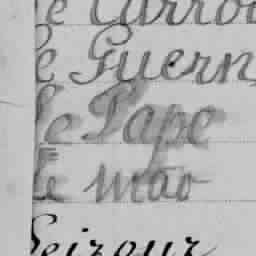 le Carrou
le Guern
le Pape
le mao
Seizour